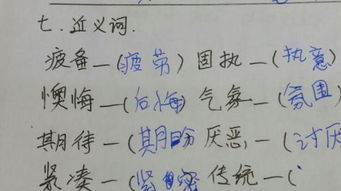 七、近义词.
疲惫—(疲劳) 固执—(执意)
懊悔—(后悔) 气象—(氛围)
期待—(期盼 厌恶—(讨厌
紧凑—(紧密 传统—(